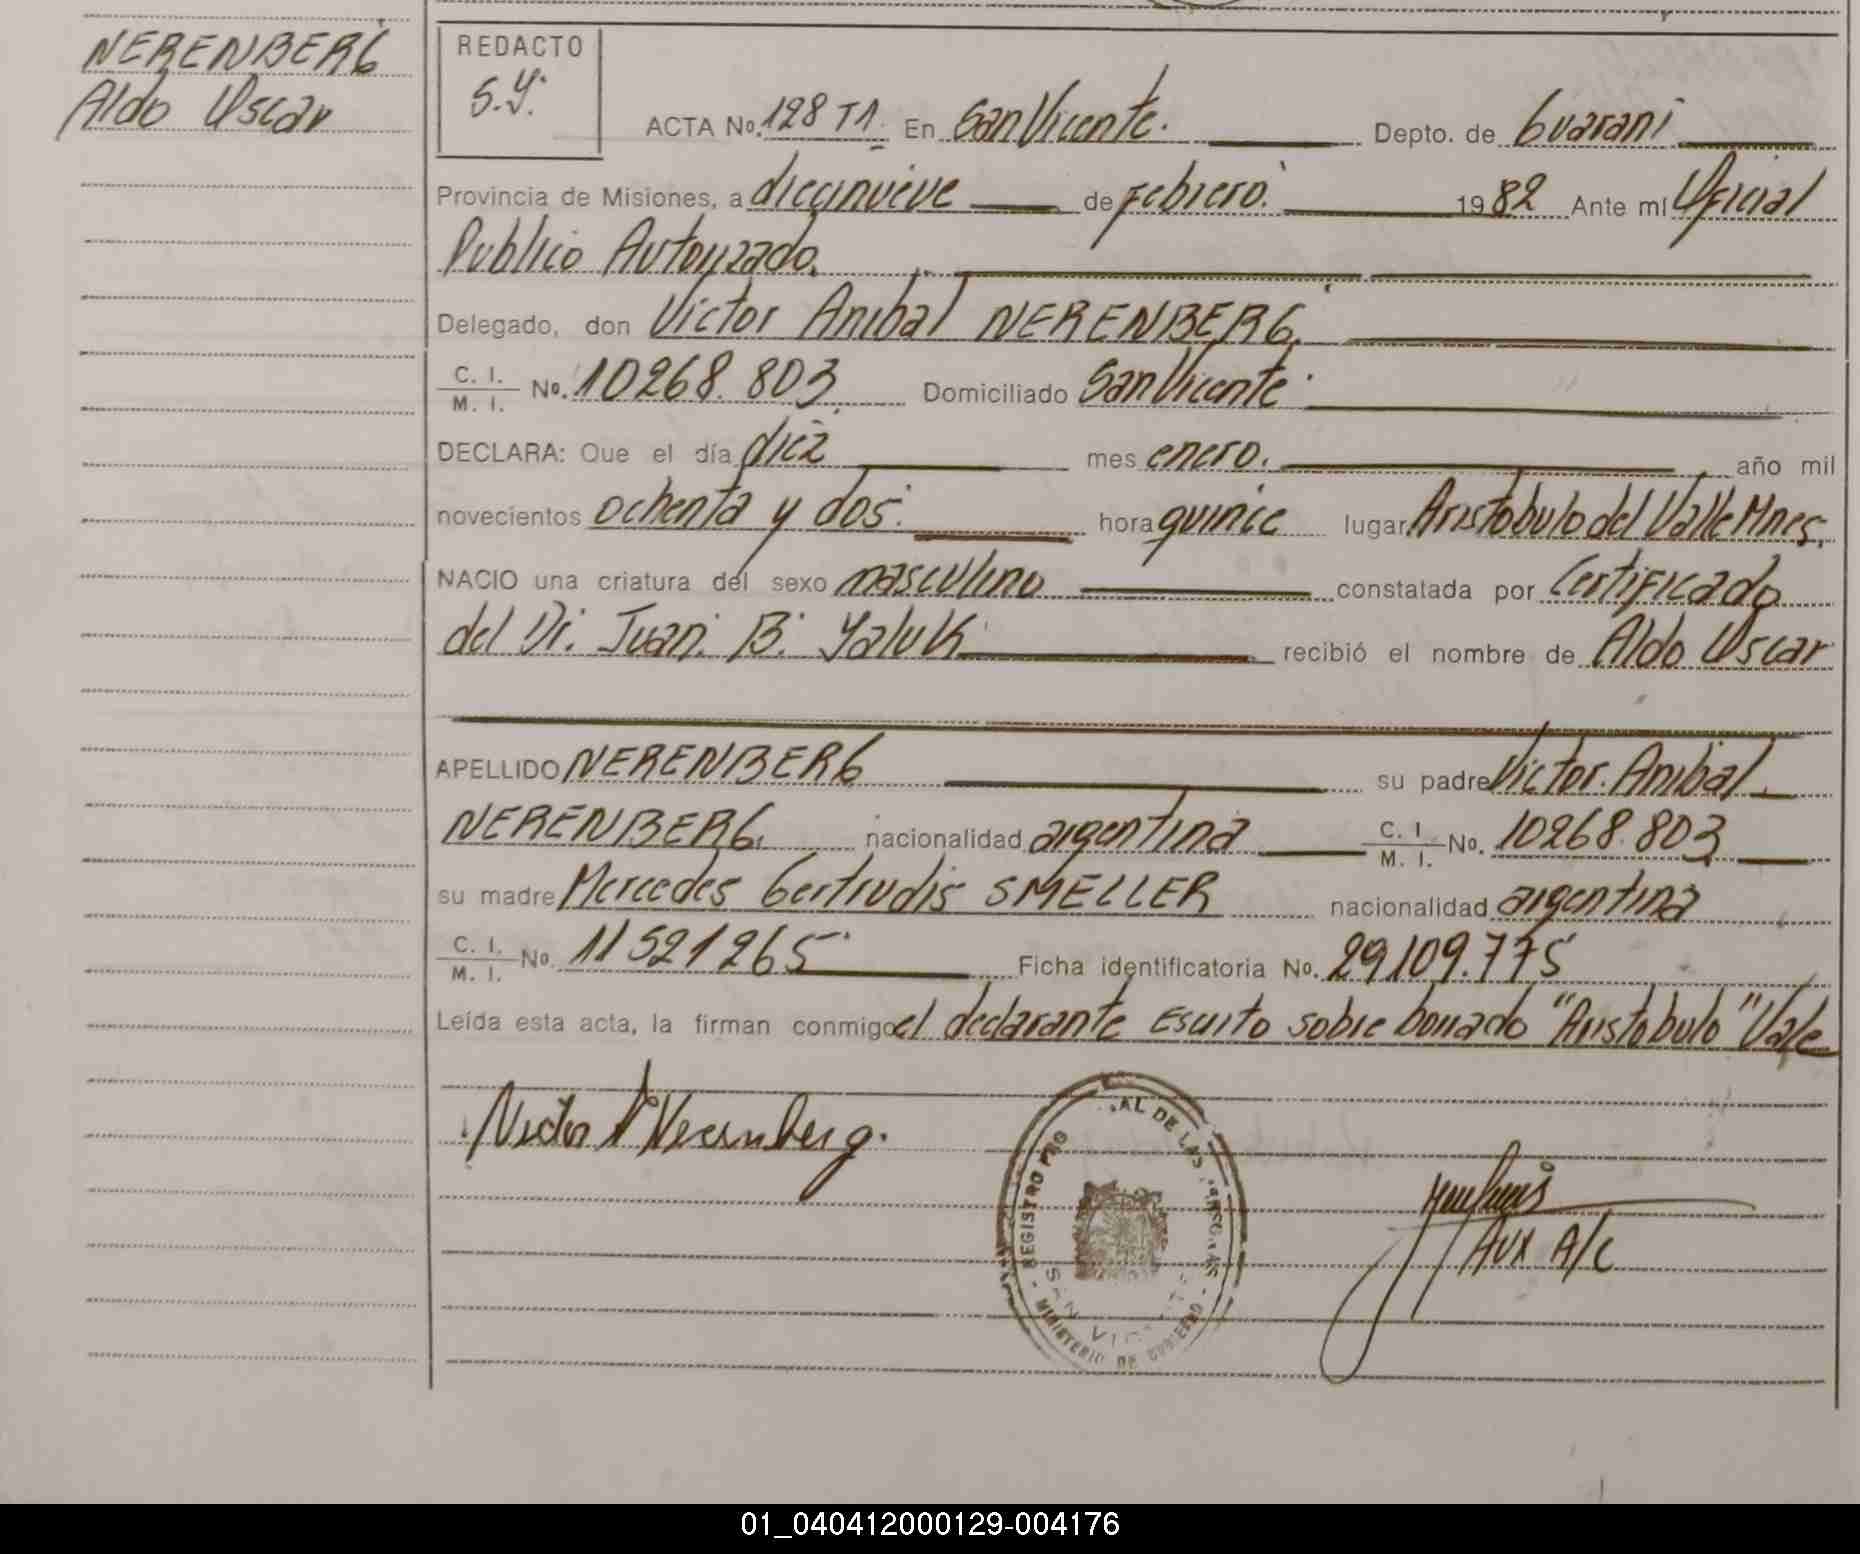 NERENBERG
Aldo Oscar
REDACTO
S.Y.
ACTA No. 128 T1. En San Vicente. Depto. de Guarani
Provincia de Misiones, a diecinueve de Febrero. 1982 Ante mí Oficial
Publico Autorizado.
Delegado, don Victor Anibal NERENBERG.
C. I. / M. I. No. 10268.803. Domiciliado San Vicente.
DECLARA: Que el día diez mes enero. año mil
novecientos ochenta y dos. hora quince lugar Aristobulo del Valle Mnes.
NACIO una criatura del sexo masculino constatada por Certificado
del Dr. Juan. B. Yaluk recibió el nombre de Aldo Oscar
APELLIDO NERENBERG su padre Victor. Anibal
NERENBERG. nacionalidad argentina C. I. / M. I. No. 10268.803
su madre Mercedes Gertrudis SMELLER nacionalidad argentina
C. I. / M. I. No. 11521265 Ficha identificatoria No. 29109.775
Leída esta acta, la firman conmigo el declarante Escrito sobre borrado "Aristobulo" Vale
Victor A Nerenberg.
REGISTRO PRO AL DE LAS PERSONAS
SAN VICENTE
MINISTERIO DE GOBIERNO
AUX A/C
01_040412000129-004176